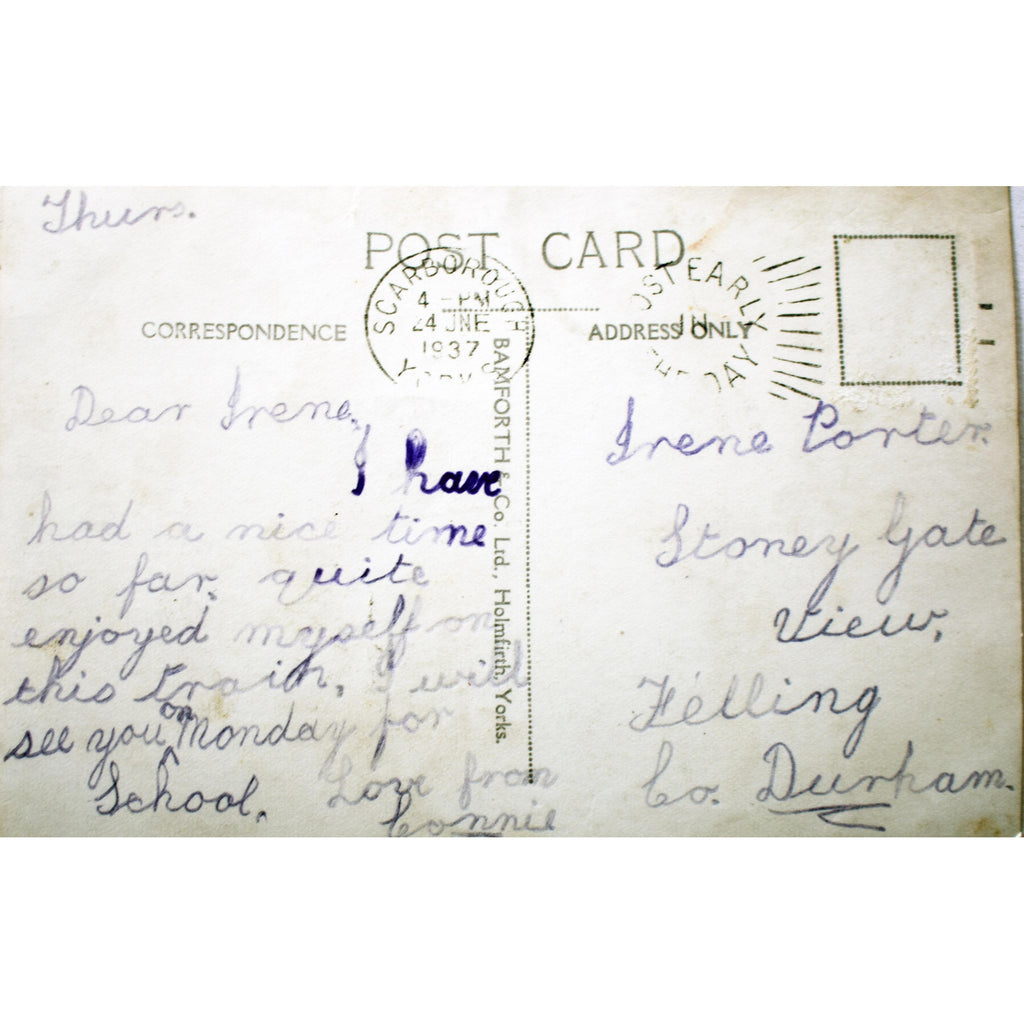 Thurs.
POST CARD
SCARBOROUGH
4 - PM
24 JNE
1937
YORKS
POST EARLY
IN
THE DAY
CORRESPONDENCE
ADDRESS ONLY
BAMFORTH & Co. Ltd., Holmfirth, Yorks.
Dear Irene,
I have
had a nice time
so far, quite
enjoyed myself on
this train, I will
see you on Monday for
School.
Love from
Connie
Irene Porter.
Stoney Gate
View,
Felling
Co. Durham.